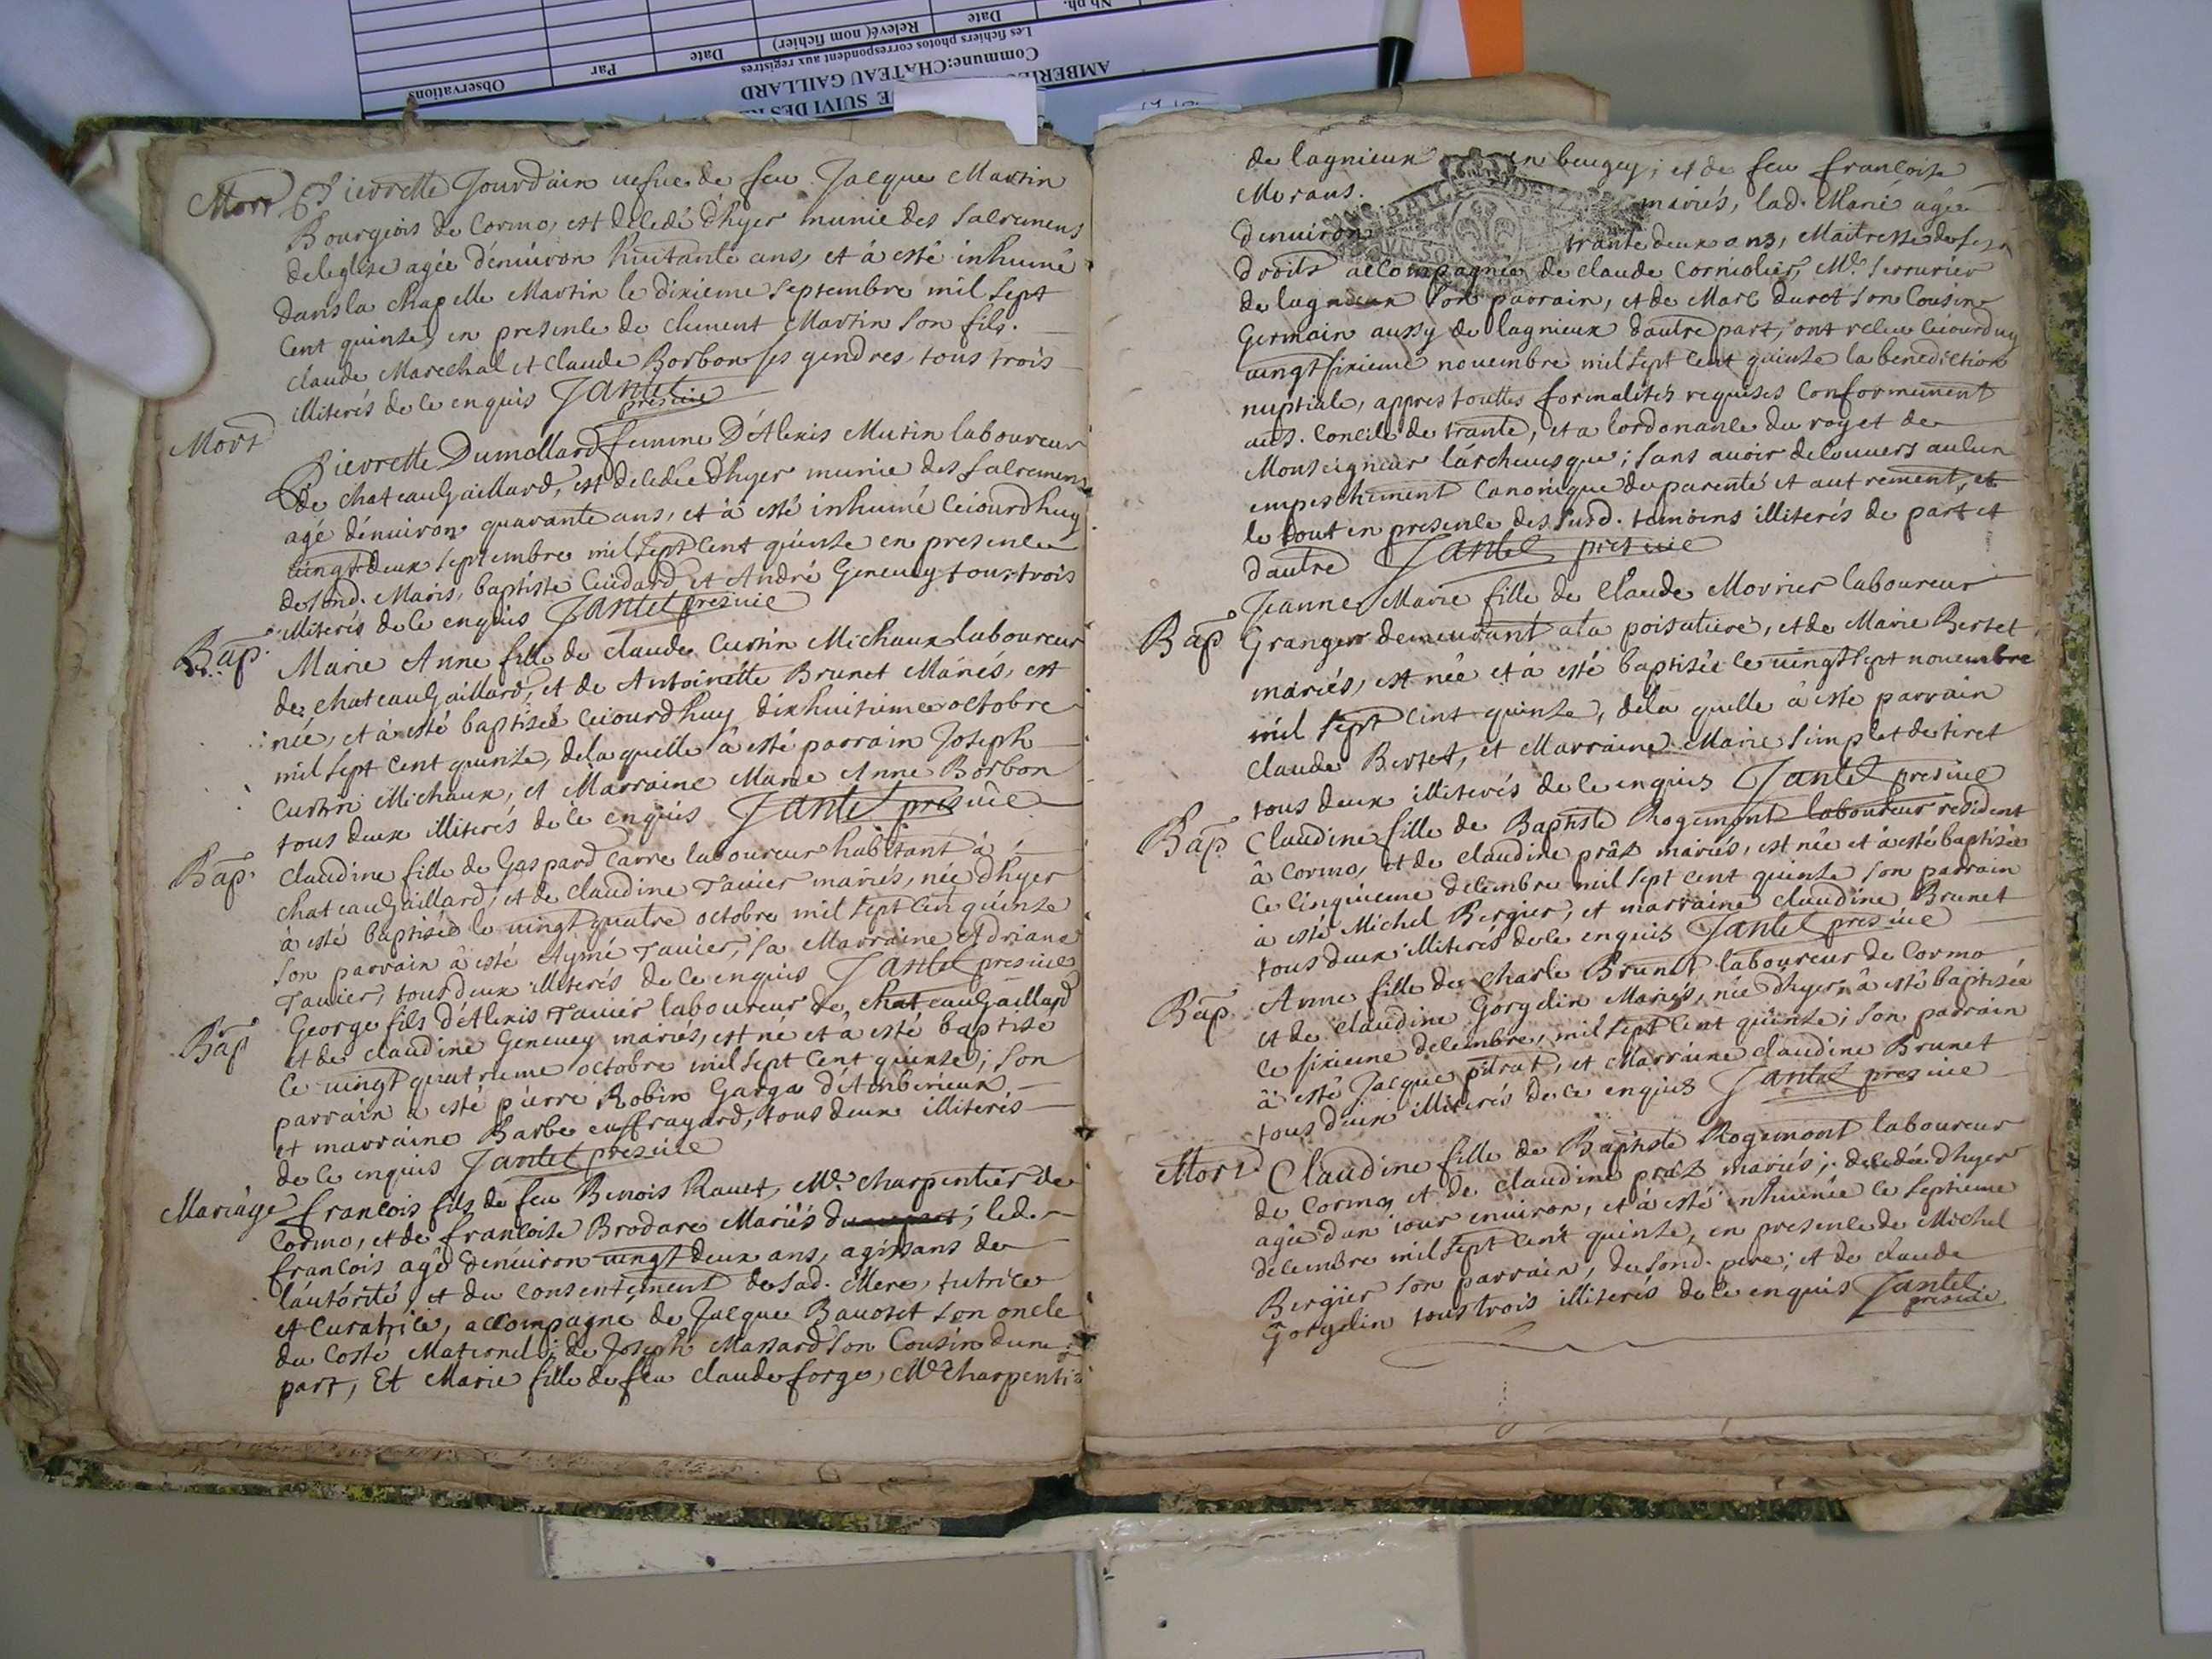 Observations
Par
Date
Relevé( nom fichier)
Date
Nb ph.
Les fichiers photos correspondent aux registres
Commune:CHATEAU GAILLARD
AMBERIE
E SUIVI DES RE
Mort Pierrette Jourdain vefue de feu Jacque Martin
Bourgeois de Cormo, est decedé d'hyer munie des sacremens
de leglise agée d'énuiron huitante ans, et à esté inhumé
dans la chapelle Martin le dixieme septembre mil sept
cent quinze, en presence de clement Martin son fils.
claude Marechal et Claude Borbon ses gendres tous trois
illiterés de ce enquis Jantet
presvie
Mort
Pierrette Dumollard femme D'Alexis Mutin laboureur
de chateaugaillard, est decedée d'hyer munie des sacremens
agé dénuiron quarante ans, et à esté inhumé ceiourdhuy
vingt deux septembre mil sept cent quinze en presence
de sond. Maris, baptiste Cuidard et André Geneuey tous trois
illiterés de ce enquis Jantet presvie
Bap. Marie Anne fille de claude Curtin Michaux laboureur
de chateaugaillard, et de Antoinette Brunet Mariés, est
née, et à esté baptisée ceiourdhuy dixhuitieme octobre
mil sept cent quinze, de la quelle à esté parrain Joseph
Curtin Michaux, et Marraine Marie Anne Borbon
tous deux illiterés de ce enquis Jantet presvie
Bap. Claudine fille de Gaspard Carre laboureur habitant à
chateaugaillard, et de claudine Tauier mariés, née d'hyer
à esté baptisée le vingt quatre octobre mil sept cen quinze
son parrain à esté Aymé Tauier, sa Marraine Adriane
Tauier, tous deux illiterés de ce enquis Jantet presvie
Bap George fils d'Alexis Tauier laboureur de chateaugaillard
et de claudine Geneuey mariés, est ne et a esté baptisé
ce vingt quatrieme octobre mil sept cent quinze; son
parrain a esté pierre Robin Garga d'Amberieux
et marraine Barbe euffrayard, tous deux illiterés
de ce enquis Jantet presvie
Mariage francois fils de feu Benois Rauet, Me. charpentier de
Cormo, et de francoise Brodare Mariés; led.
francois agé denuiron vingt deux ans, agissans de
láutórité, et du consentement de sad. Mere, tutrice
et Curatrice, accompagné de Jacque Bauotet son oncle
du Costé Maternel; de Joseph Massard son Cousin dune
part, Et Marie fille de feu claude forge, Me charpentie
de lagnieux en beugey; et de feu francoise
Morans. mariés, lad. Marie agée
denuiron trante deux ans, Maitresse de ses
droits accompagnée de claude Corniolier, Me. serrurier
de lagnieux son parrain, et de Marc duret son Cousin
Germain aussy de lagnieux dautre part, ont receu ceiourdhuy
vingt sixieme nouembre mil sept cent quinze la benediction
nuptiale, appres touttes formalités requises Conformement
au s. Concile de trante, et a lordonance du roy et de
Monseigneur lárcheuesque; sans auoir decouuers aucun
empeschement Canonique de parenté et autrement, et
le tout en presence des susd. temoins illiterés de part et
dautre Jantet presvie
Bap Jeanne Marie fille de Claude Movrier laboureur
Granger demeurant a la poisatiere, et de Marie Bertet
mariés, est née et à esté baptisée ce vingt sept nouembre
mil sept cent quinze, dela quelle à esté parrain
claude Bertet, et Marraine Marie simplet de tiret
tous deux illiterés de ce enquis Jantet presvie
Bap Claudine fille de Baptiste Rogemont laboureur resident
à Cormo, et de claudine prâz mariés, est née et à esté baptisée
ce cinquieme decembre mil sept cent quinze son parrain
à esté Michel Bergier, et marraine claudine Brunet
tous deux illiterés de ce enquis Jantet presvie
Bap Anne fille de Charle Brunet laboureur de Cormo
et de claudine Gorgelin Mariés, née d'hyer, à esté baptisée
ce sixieme decembre, mil sept cent quinze; son parrain
à esté Jacque pitrat, et Marraine claudine Brunet
tous deux illiterés de ce enquis Jantet presvie
Mort Claudine fille de Baptiste Rogemont laboureur
de Cormo, et de claudine prâz mariés; decedée d'hyer
agée dun iour enuiron, et à esté inhumée ce septieme
decembre mil sept cent quinze, en presence de Michel
Bergier son parrain, de sond. pere; et de claude
Gorgelin tous trois illiterés de ce enquis Jantet
presvie